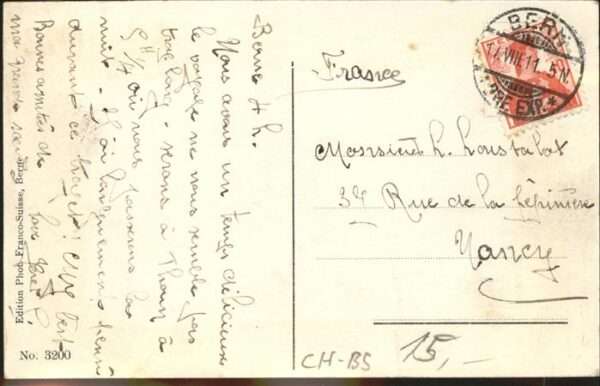 Berne 4 h.
Nous avons un temps délicieux
le voyage ne nous semble pas
trop long - serons à Thoun à
5H 1/4 où nous passerons la
nuit. J'ai largement dormi
durant ce trajet!
Bonnes amitiés de
ma grande sœur
Edition Photo Franco-Suisse, Berne
No. 3200
BERN
17.VIII.11. 5N.
BRF. EXP.
France
Monsieur h. Loustalot
34 Rue de la Pépinière
Nancy
CH-BS 15,-